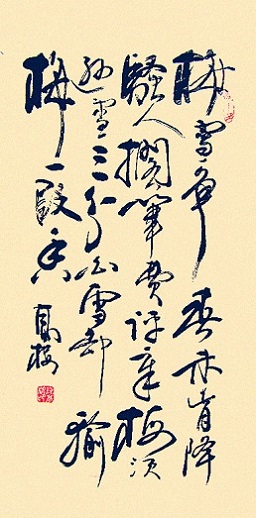 梅雪爭春未肯降
騷人擱筆費評章梅須
遜雪三分白雪却輸
梅一段香